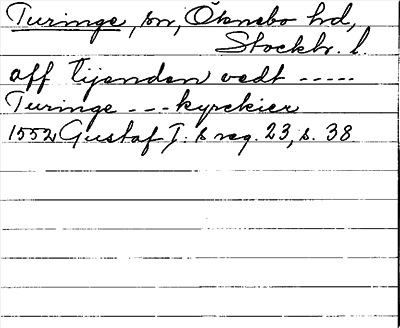 Turinge, sn, Öknebo hd,
Stockh. l.
aff tijenden vedt -----
Turinge --- kyrckier
1552 Gustaf I: s reg. 23, s. 38